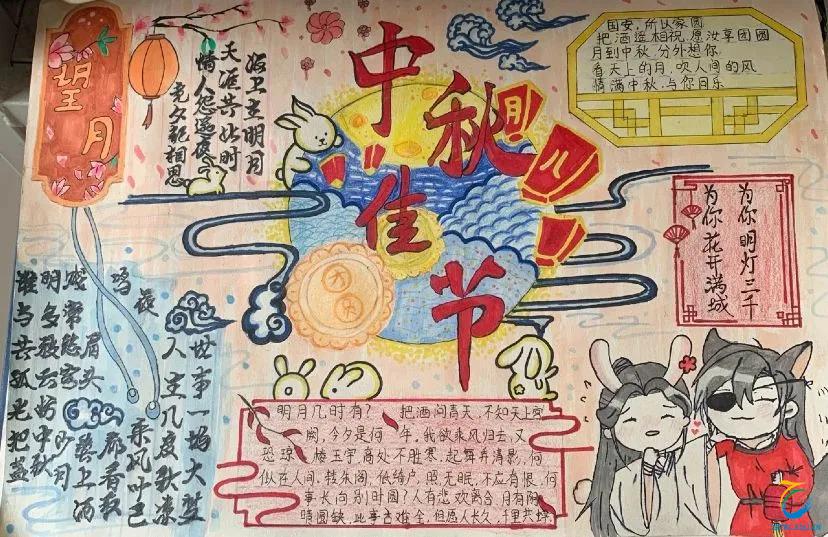 望月
海上生明月
天涯共此时
情人怨遥夜
竟夕起相思
中秋佳节
月
八
国安，所以家圆
把酒遥相祝，愿汝享团圆
月到中秋，分外想你
看天上的月，吹人间的风
情满中秋，与你同乐
为你明灯三千
为你花开满城
世事一场大
人生几度秋凉
夜来风叶已
鸣廊看取
眉头鬓上酒
常愁客少月
明多云妨中秋
谁与共孤光把盏
明月几时有？把酒问青天，不知天上宫
阙，今夕是何年，我欲乘风归去，又
恐琼楼玉宇，高处不胜寒，起舞弄清影，何
似在人间，转朱阁，低绮户，照无眠，不应有恨，何
事长向别时圆？人有悲欢离合，月有阴
晴圆缺，此事古难全，但愿人长久，千里共婵